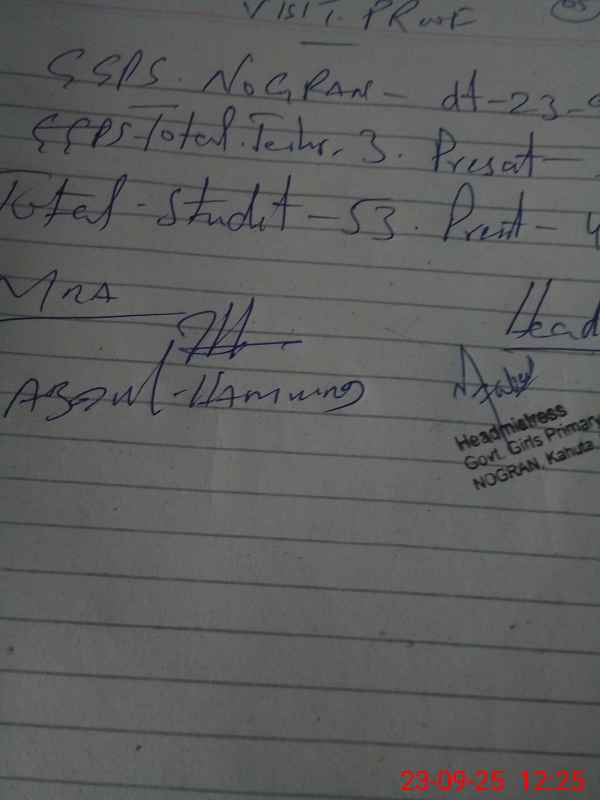 VISIT. PROOF 05
GGPS. NOGRAN - dt - 23 -
GGPS Total. Teachr. 3. Presat -
Total - Studet - 53. Presnt - 4
MEA Head
ABDUL - HAMEED
Headmistress
Govt. Girls Primary
NOGRAN, Kahuta.
23-09-25 12:25